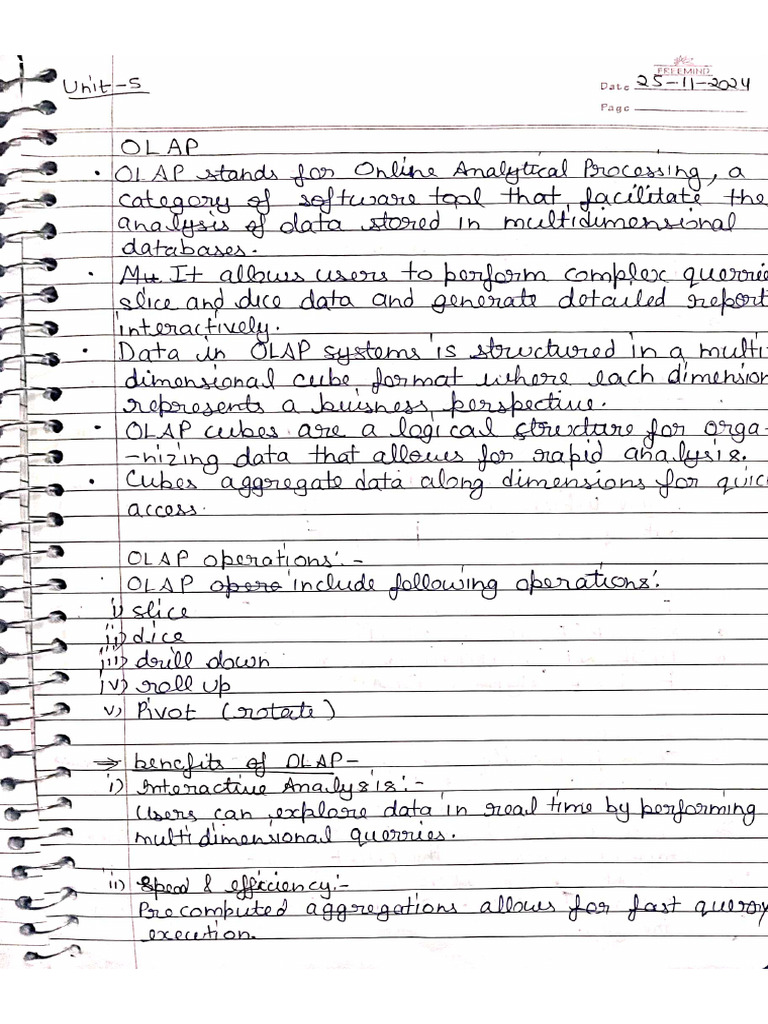 FREEMIND
Unit-5
Date 25-11-2024
Page
OLAP
• OLAP stands for Online Analytical Processing, a
category of software tool that facilitate the
analysis of data stored in multidimensional
databases.
• Mu It allows users to perform complex querrie
slice and dice data and generate detailed report
interactively.
• Data in OLAP systems is structured in a multi
dimensional cube format where each dimension
represents a buisness perspective.
• OLAP cubes are a logical structure for orga-
-nizing data that allows for rapid analysis.
• Cubes aggregate data along dimensions for quic
access.
OLAP operations:-
OLAP opera include following operations:
i) slice
ii) dice
iii) drill down
iv) roll up
v) Pivot (rotate)
→ benefits of OLAP-
i) Interactive Analysis:-
Users can explore data in real time by performing
multidimensional querries.
ii) Speed & efficiency:-
Precomputed aggregations allows for fast query
execution.